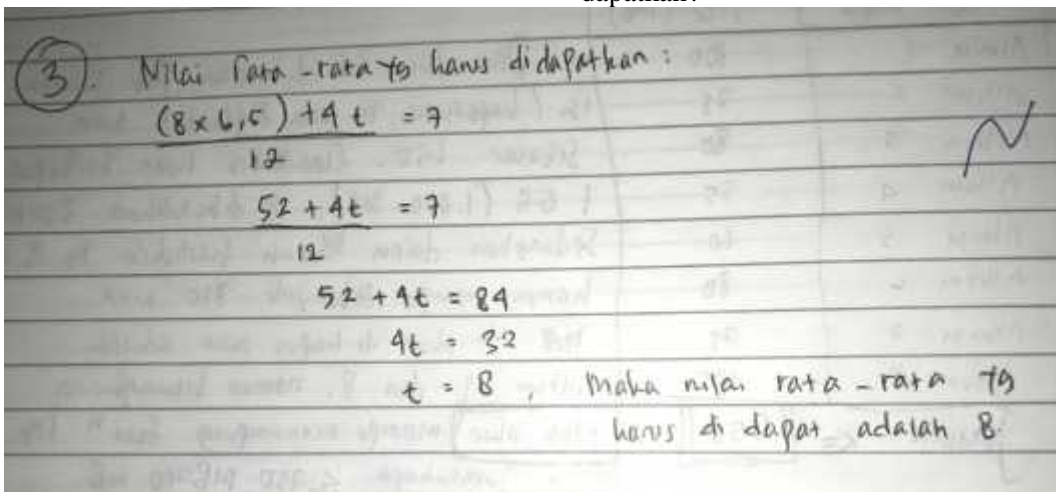 dapatkan?
3). Nilai rata-rata yg harus didapatkan :
(8 x 6,5) + 4 t = 7
12
52 + 4t = 7
12
52 + 4t = 84
4t = 32
t = 8, maka nilai rata-rata yg
harus di dapat adalah 8.